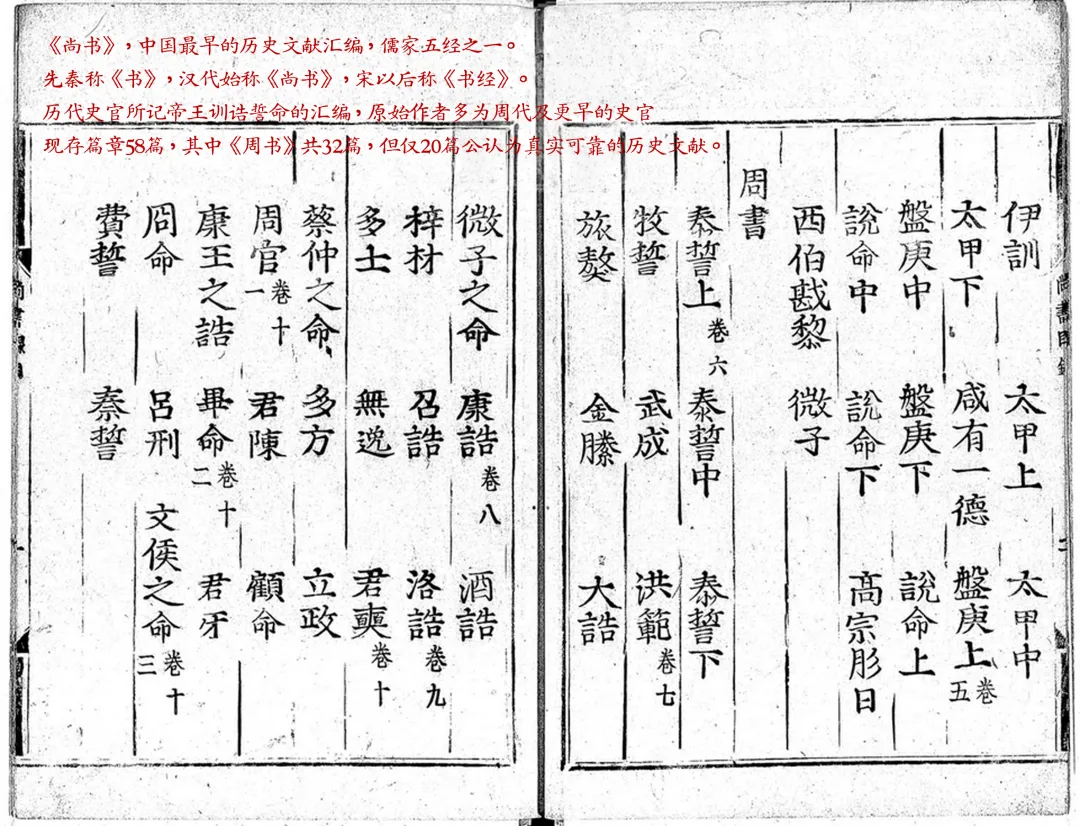 《尚书》，中国最早的历史文献汇编，儒家五经之一。
先秦称《书》，汉代始称《尚书》，宋以后称《书经》。
历代史官所记帝王训诰誓命的汇编，原始作者多为周代及更早的史官
现存篇章58篇，其中《周书》共32篇，但仅20篇公认为真实可靠的历史文献。
伊訓 太甲上 太甲中
太甲下 咸有一德 盤庚上 卷五
盤庚中 盤庚下 說命上
說命中 說命下 高宗肜日
西伯戡黎 微子
周書
泰誓上 卷六 泰誓中 泰誓下
牧誓 武成 洪範 卷七
旅獒 金縢 大誥
微子之命 康誥 卷八 酒誥
梓材 召誥 洛誥 卷九
多士 無逸 君奭 卷十
蔡仲之命 多方 立政
周官 卷十一 君陳 顧命
康王之誥 畢命 卷十二 君牙
冏命 呂刑 文侯之命 卷十三
費誓 秦誓